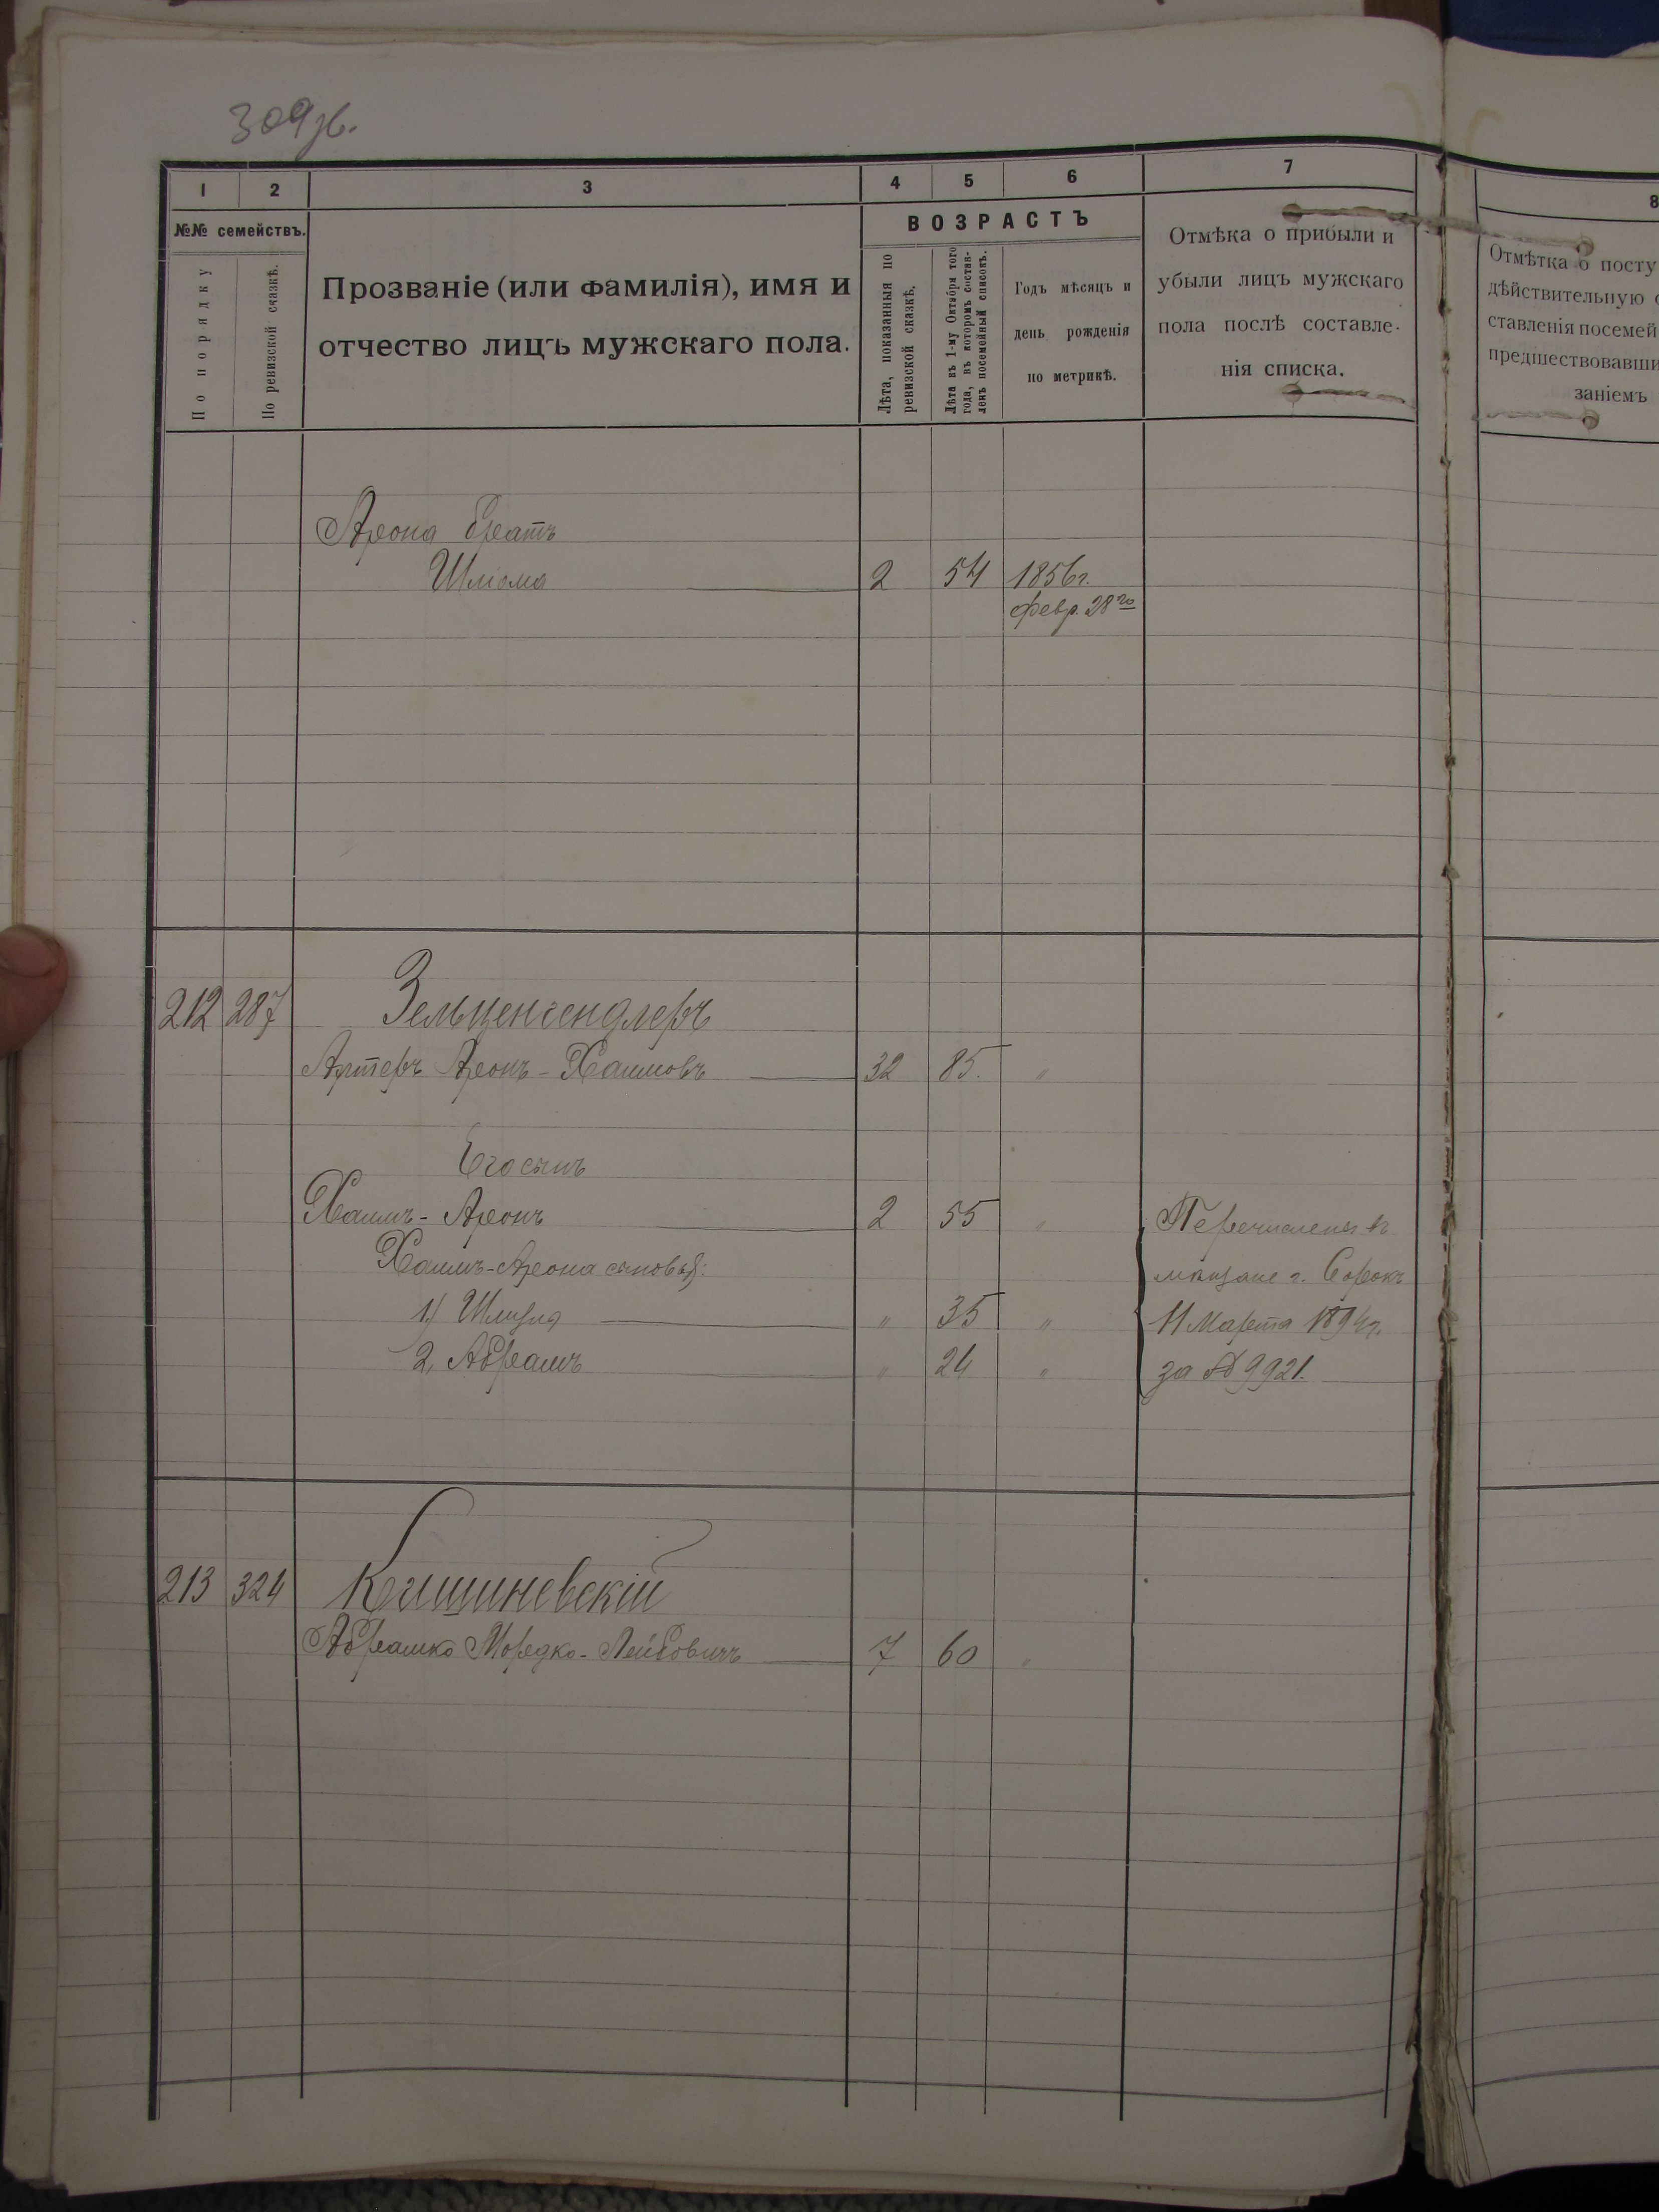 309зв.
1 2 3 4 5 6 7 8
№№ семействъ.
По порядку
По ревизской сказкѣ.
Прозваніе (или фамилія), имя и
отчество лицъ мужскаго пола.
ВОЗРАСТЪ
Лѣта, показанныя по
ревизской сказкѣ.
Лѣта къ 1-му Октября того
года, въ которомъ состав-
ленъ посемейный списокъ.
Годъ мѣсяцъ и
день рожденія
по метрикѣ.
Отмѣка о прибыли и
убыли лицъ мужскаго
пола послѣ составле-
нія списка.
Отмѣтка о посту
дѣйствительную
ставленія посемей
предшествовавши
заніемъ
Арона братъ
Шліома 2 54 1856г.
февр. 28го
212 287 Зельценгендлеръ
Аронъ-Хаимовъ 32 85. "
Его сынъ
Хаимъ-Аронъ 2 55 " Перечислены въ
Хаимъ-Арона сыновья: мѣщане г. Сорокъ
1) Шмуля " 35 " 11 Марта 1894г.
2, Абрамъ " 24 " за № 9921.
213 324 Кишиневскій
Абрамко Мордко-Лейбовичъ 7 60 "